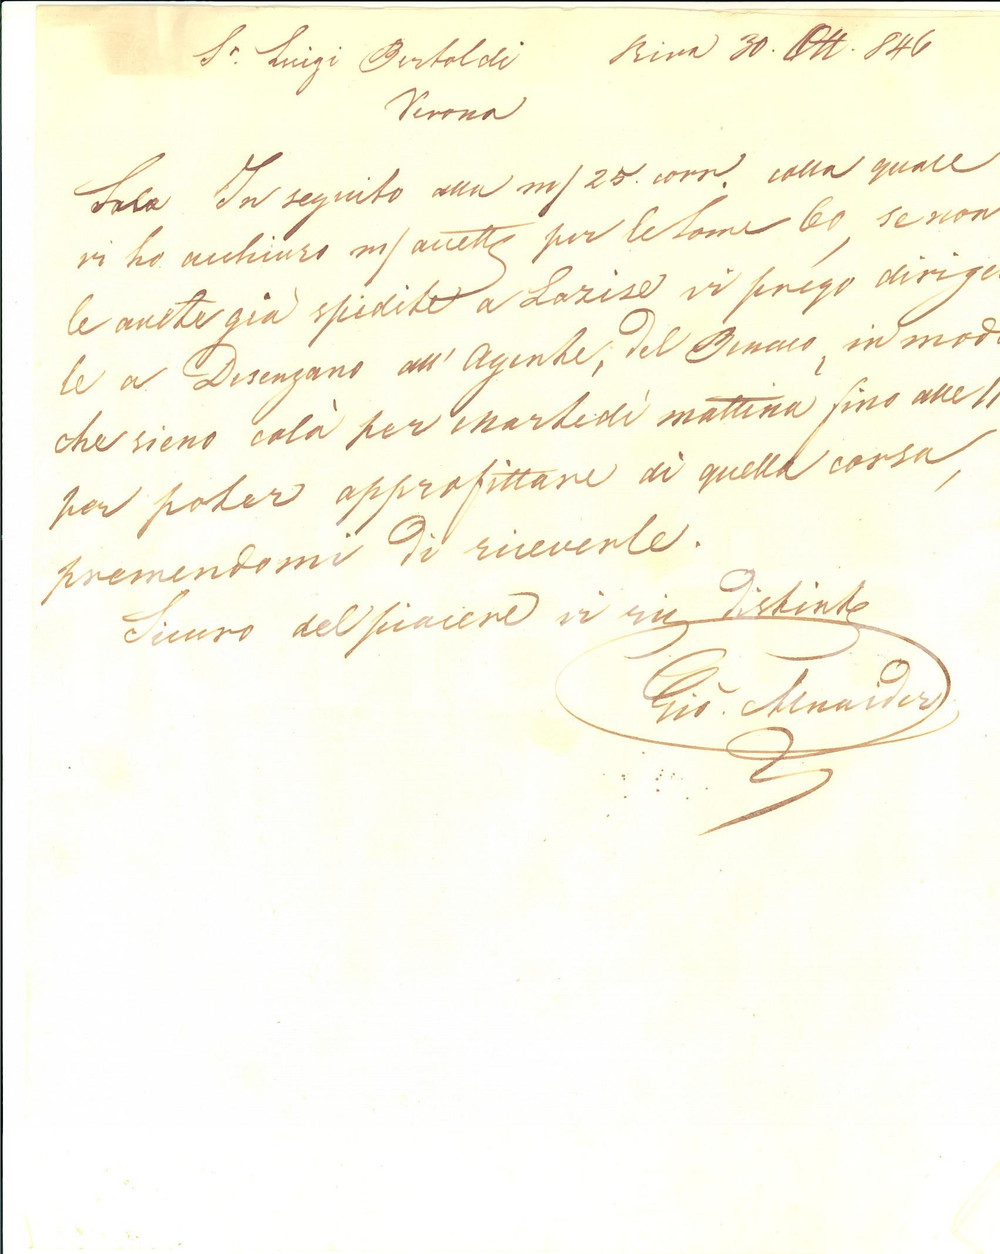 Sr. Luigi Bertoldi Riva 30. Ott. 846
Verona
In seguito alla m/ 25. corr. colla quale
vi ho acchiuso m/ accetto per le Some 60, se non
le avete già spedite a Lazise vi prego dirige
le a Desenzano all' Agente, del Benaco, in modo
che sieno colà per Martedi mattina fino alle 11
per poter approfittare di quella corsa,
premendomi di riceverle.
Sicuro del piacere vi riv distinte
Gio.